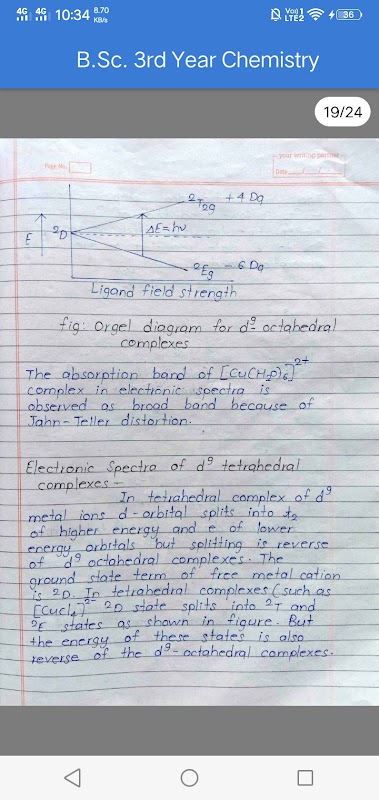 4G 4G 10:34 8.70 KB/s Vo) 1 LTE2 36
B.Sc. 3rd Year Chemistry
19/24
your writing partner
Page No.
Date
²T₂g +4 Dq
ΔE=hν
E
²D
²Eg -6 Dq
Ligand field strength
fig: Orgel diagram for d⁹ octahedral
complexes
The absorption band of [Cu(H₂O)₆]²⁺
complex in electronic spectra is
observed as broad band because of
Jahn-Teller distortion.
Electronic Spectra of d⁹ tetrahedral
complexes -
In tetrahedral complex of d⁹
metal ions d-orbital splits into t₂
of higher energy and e of lower
energy orbitals but splitting is reverse
of d⁹ octahedral complexes. The
ground state term of free metal cation
is ²D. In tetrahedral complexes (such as
[CuCl₄]²⁻ ²D state splits into ²T and
²E states as shown in figure. But
the energy of these states is also
reverse of the d⁹-octahedral complexes.